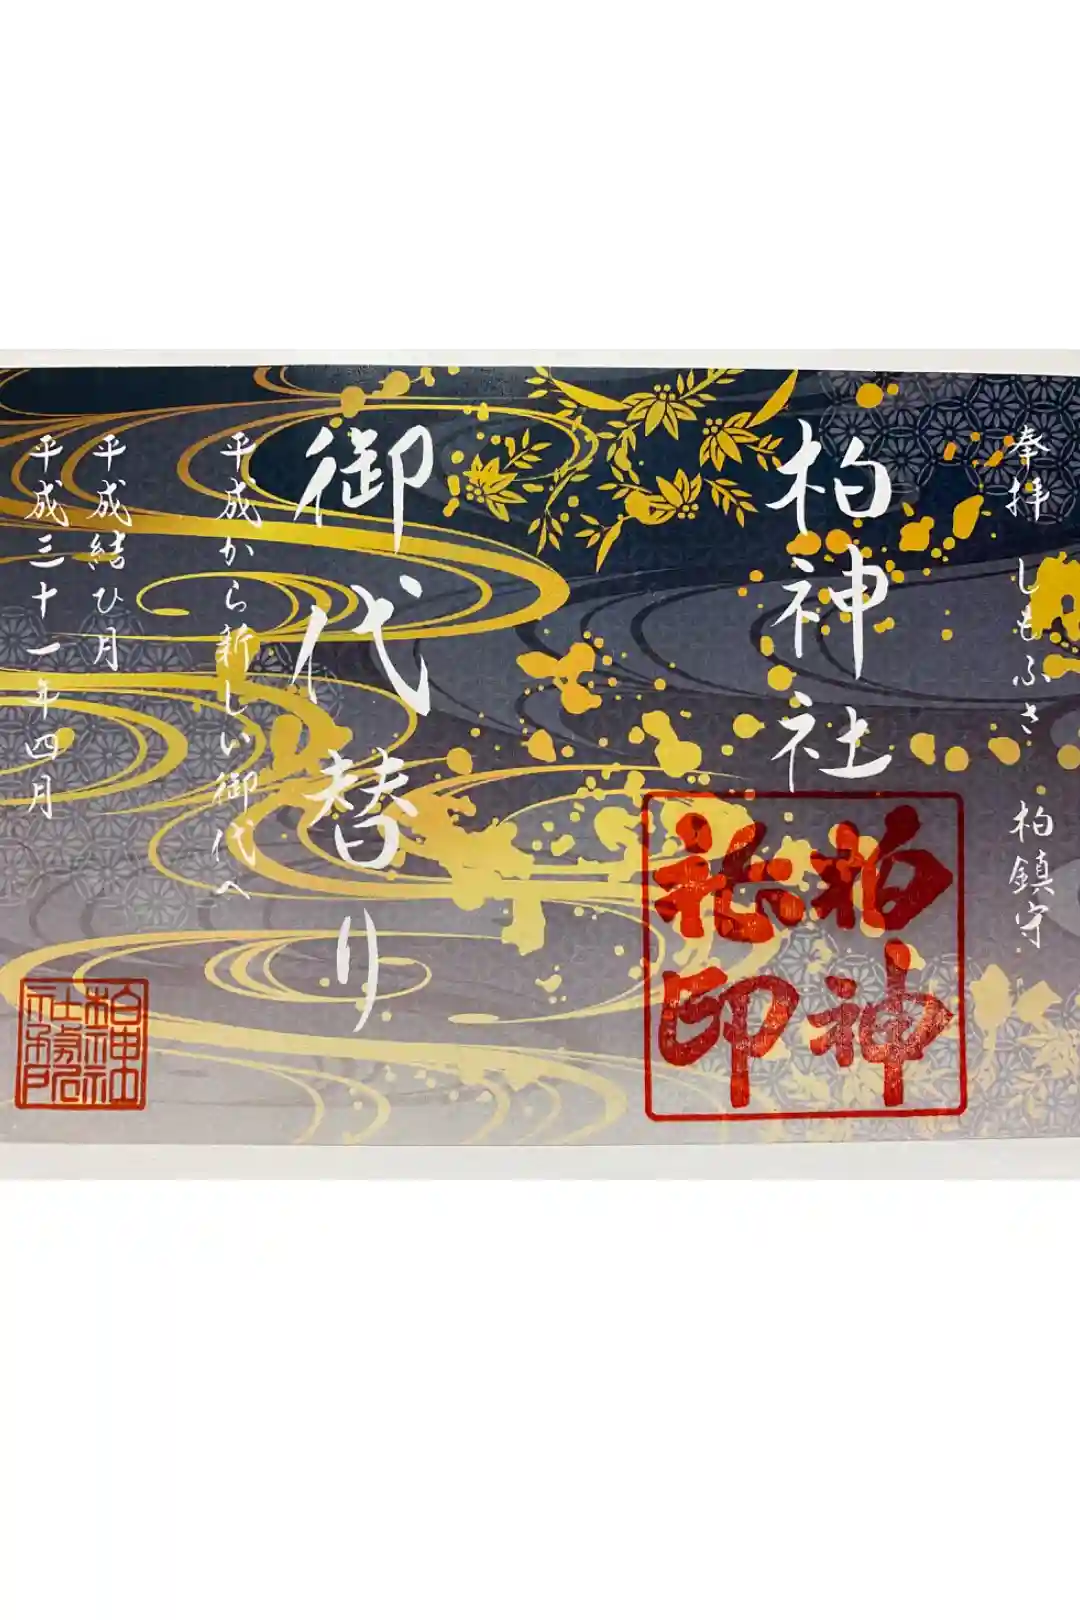 奉拝 しもふさ 柏鎮守
柏神社
柏神社印
御代替り
平成から新しい御代へ
平成結び月
平成三十一年四月
柏神社社務所印